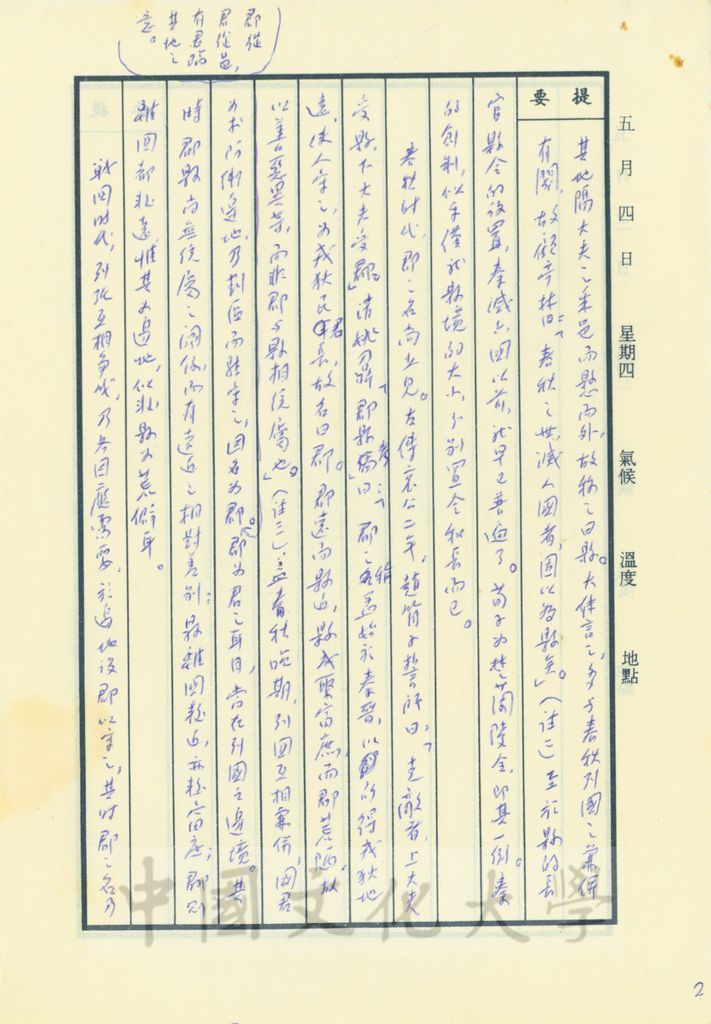 五月四日　星期四　氣候　溫度　地點
提要
其地隔大夫之采邑而懸而外，故稱之曰縣。大体言之，多与春秋列國之兼併
有關，故顧亭林曰：「春秋之世，滅人國者，固以為縣矣。」（注二）至於縣的長
官縣令的設置，秦滅六國以前，就早已普遍了。荀子为楚蘭陵令，即其一例。秦
的創制，似乎僅就縣境的大小，分別置令和長而已。
春秋时代，郡之名尚少見。左傳哀公二年，趙簡子誓师曰：「克敵者，上大夫
受縣，下大夫受郡。」清姚鼐「郡縣考」曰：「郡之稱蓋始於秦晉，以所得戎狄地
遠，使人守之，为戎狄民君長，故名曰郡。郡遠而縣近，縣成聚富庶，而郡荒陋，故
以善惡異等，而非郡与縣相統屬也。」（注三）蓋春秋晚期，列國互相兼併，國君
为求防衛邊地，乃劃區而駐守之，因名为郡。郡为君之耳目，当在列國之邊境。其
時郡縣尚無統屬之関係，而有遠近之相對差別：縣離國較近，亦較富庶；郡則
離國都較遠，惟其为邊地，似較縣为荒僻耳。
戰國时代，列強互相争战，乃各因應需要，於邊地设郡以守之，其时郡之名乃
郡從
君從邑，
有君臨
其地之
意。
中國文化大學
2